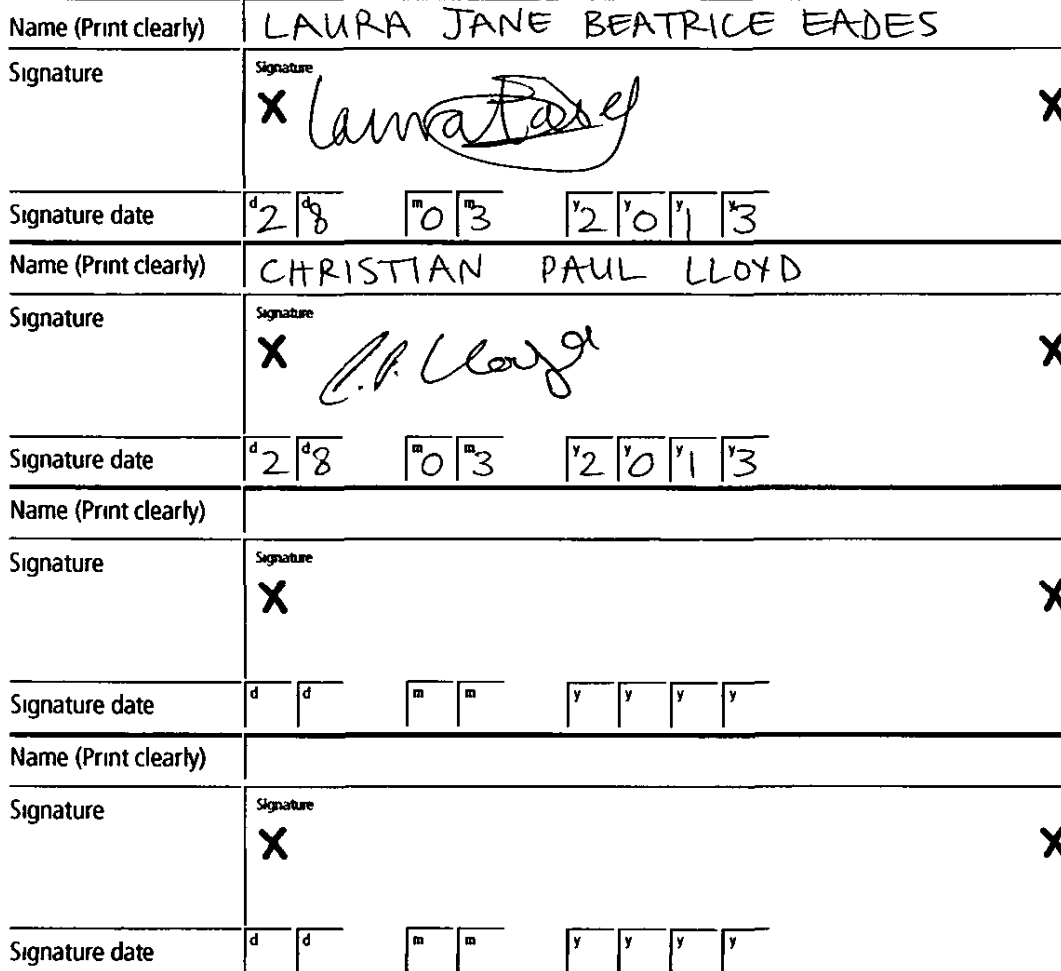 Name (Print clearly) LAURA JANE BEATRICE EADES
Signature Signature
X X
Signature date d2 d8 m0 m3 y2 y0 y1 y3
Name (Print clearly) CHRISTIAN PAUL LLOYD
Signature Signature
X C.P. Lloyd X
Signature date d2 d8 m0 m3 y2 y0 y1 y3
Name (Print clearly)
Signature Signature
X X
Signature date d d m m y y y y
Name (Print clearly)
Signature Signature
X X
Signature date d d m m y y y y